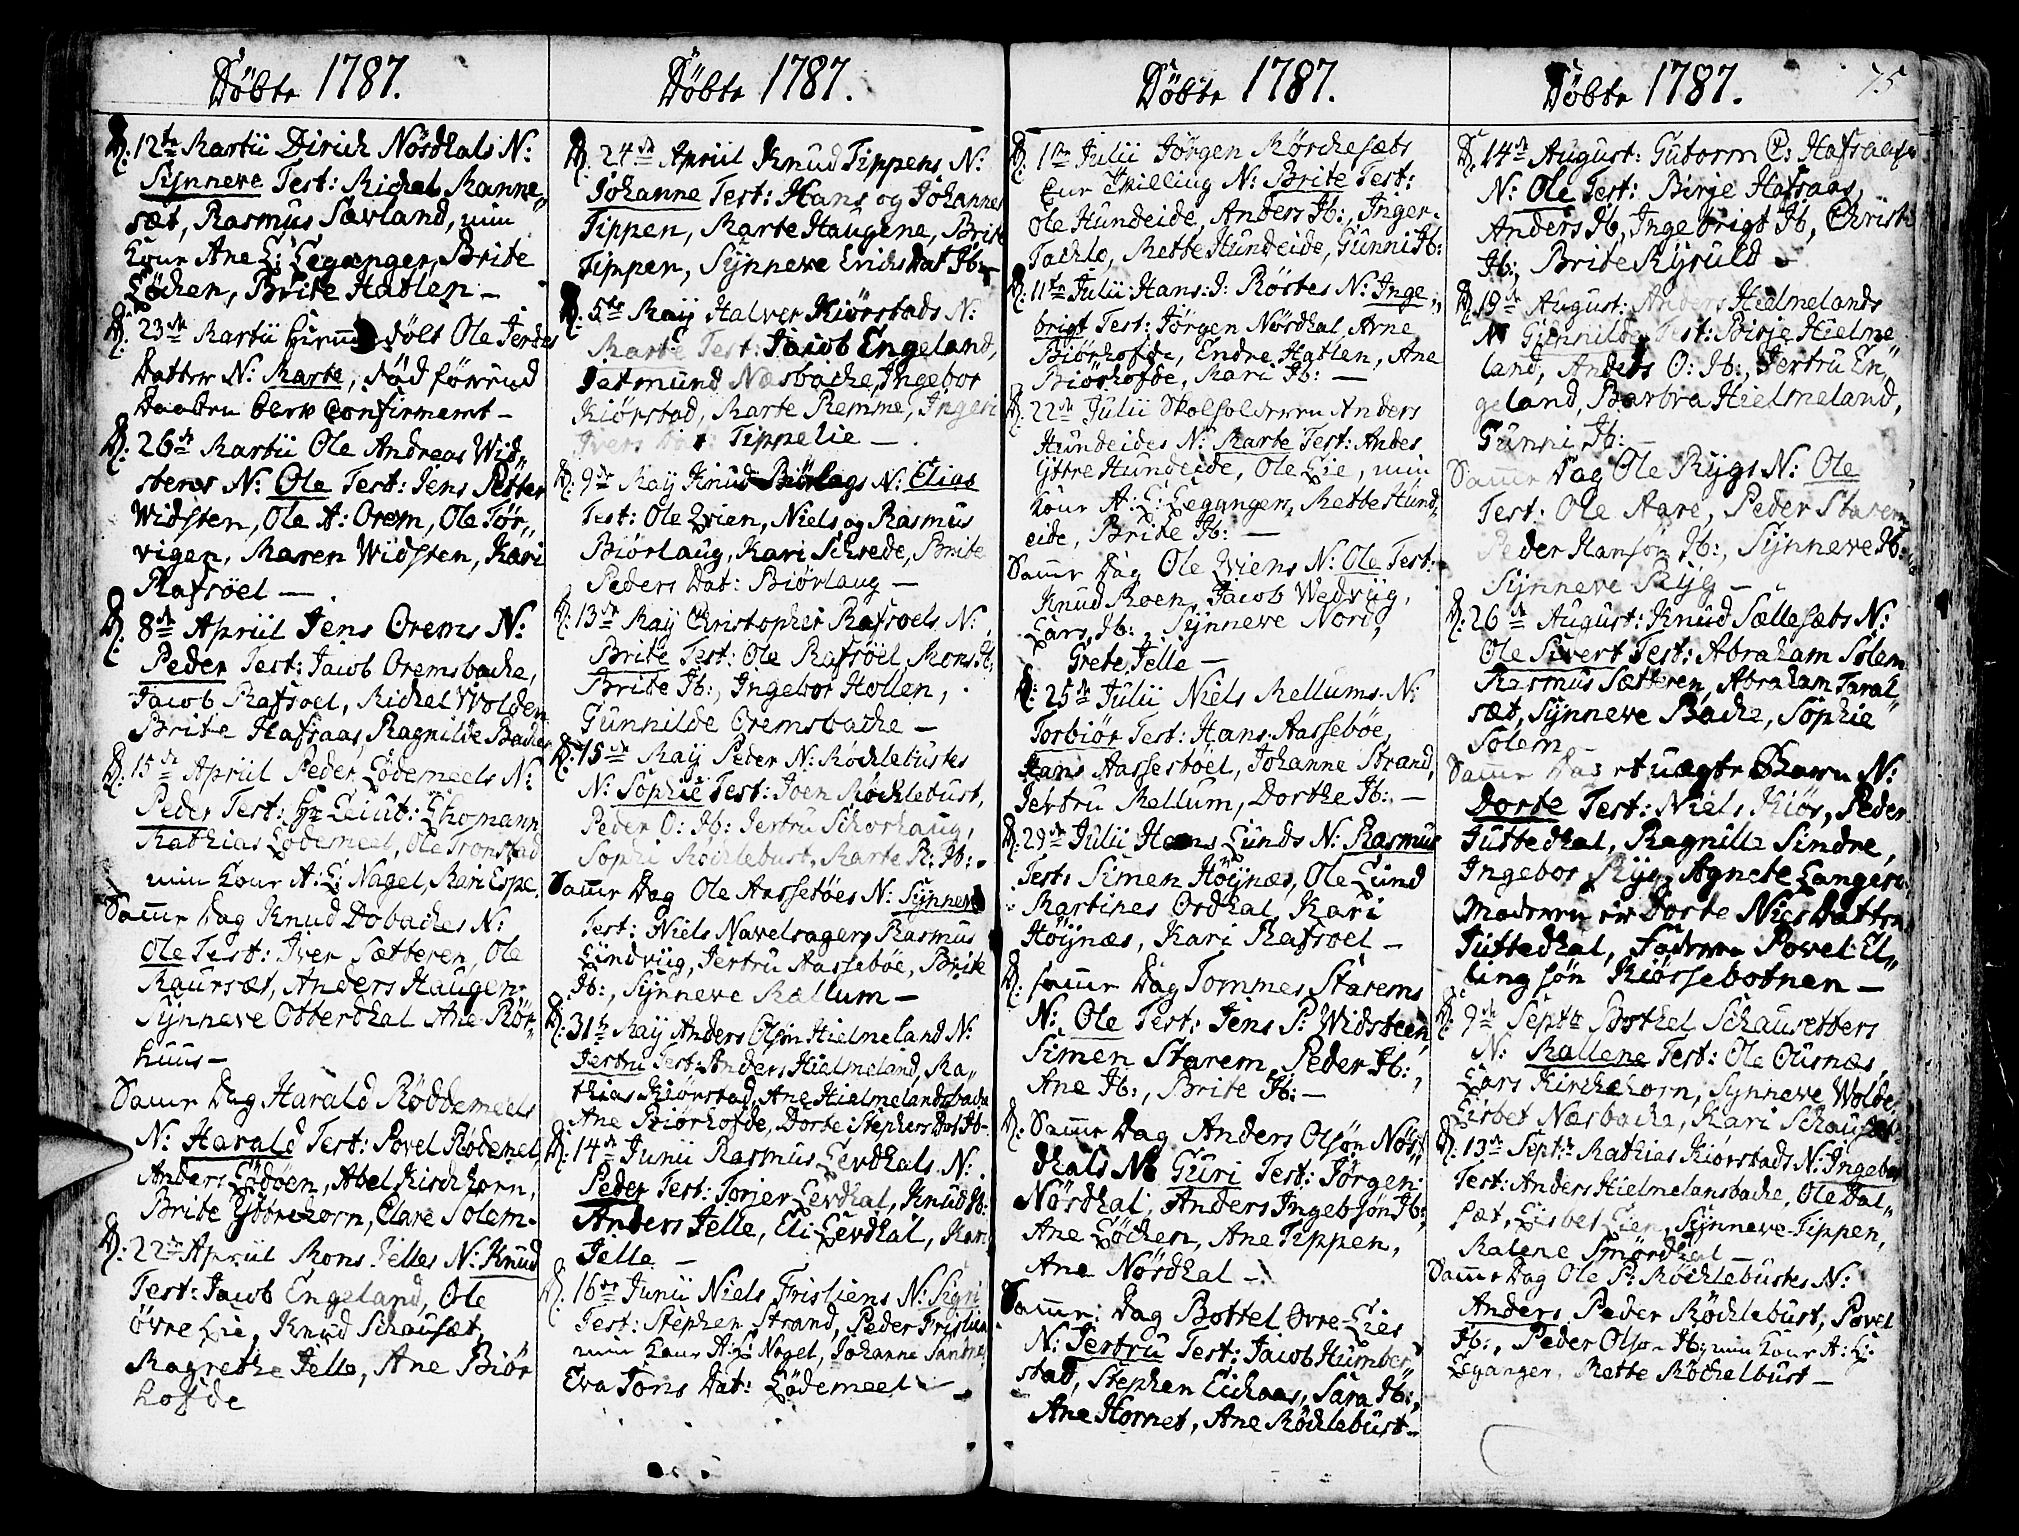 Döbte 1787.
D: 12te Martii Dirich Nördhals N:
Synneve Test: Michel Manne„
sæt, Rasmus Sævland, min
Kour Ane L: Leganger, Brite
Löchen, Brite Hatlen –
D: 23de Martii Ole Jerdes
Datter N: Marte, föd
confirmert –
D: 26de Martii Ole Andreas Wid„
stens N: Ole Test: Jens Petter
Widsten, Ole A: Orem, Ole Tör„
vigen, Maren Widsten, Kari
Rafsöel –
D: 8de Apriil Jens Orems N:
Peder Test: Jacob Oremsbache,
Jacob Rafsoel, Michel Wolden
Brite Hafsaas, Ragnilde Bache
D: 15de Apriil Peder Lödemeels N:
Peder Test: Hr Leiut: Thomann
Mathias Lödemeel, Ole Tronstad
min Kour A: L: Nagel, Mari Espe.
Samme Dag Knud Dobaches N:
Ole Test: Iver Sætteren, Ole
Maursæt, Anders Haugen
Synneve Otterdhal Ane Rör„
huus –
Samme Dag Harald Röddemeels
N: Harald Test: Povel Rödemel,
Anders Lödöen, Abel Kirchhorn,
Brite Ytterhorn, Clare Solem –
D: 22de Apriil Mons Jelles N: Knud
Test: Jacob Engeland, Ole
övre Lie, Knud Schausæt,
Magrethe Jelle, Ane Biör
hofde
Döbte 1787.
D: 24de Apriil Knud Tippens N:
Johanne Test: Hans og Johannes
Tippen, Marte Haugene, Brite
Tippen, Synneve Erichs Dat Ib: –
D: 5te Maij Halver Kiörstads N:
Marte Test: Jacob Engeland,
Jetmund Næsbache, Ingebor
Kiörstad, Marte Remme, Ingeri
Ivers Dat: Tippelie –
D: 9de Maij Knud Biörlogs N: Elias
Test: Ole Qvien, Niels og Rasmus
Biörlaug, Kari Schrede, Brite
Peders Dat: Biörlaug –
D: 13de Maij Christopher Rafsoels N:
Brite Test: Ole Rafsöel, Mons Ib:
Brite Ib:, Ingebor Hollen,
Gunnilde Oremsbache –
D: 15de Maij Peder N: Röchlebustes
N: Sophie Test: Joen Röchlebust,
Peder O: Ib: Jertru Schorhaug,
Sophi Röchlebust, Marte R: Ib: –
Samme Dag Ole Aassetöes N: Synneve
Test: Niels Navelsager, Rasmus
Lindviig, Jertru Aasseböe, Brite
Ib:, Synneve Mællum –
D: 31te Maij Anders Olsön Hielmeland N:
Jertru Test: Anders Hielmeland, Ma„
thias Kiörstad, Ane Hielmelandsbache
Ane Biörhofde, Dorte Stephens Dat Ib –
D: 14de Junii Rasmus Levdhals N:
Peder Test: Torjer Levdhal, Knud Ib:
Anders Jelle, Eli Levdhal, Kari
Jelle –
D: 16de Junii Niels Fristiens N: Sigri
Test: Stephen Strand, Peder Fristien
min Kour A: L: Nagel, Johanne Sandne,
Eva Tons Dat: Lödemeel –
Döbte 1787.
D: 1te Julii Jörgen Mörchesæts
N: Brite Test:
Ole Hundeide, Anders Ib:, Inger
Tachle, Mette Hundeide, Gunni Ib:
D: 11te Julii Hans J: Röstes N: Inge„
brigt Test: Jörgen Nördhal, Arne
Biörhofde, Endre Hatlen, Ane
Biörhofde, Mari Ib: –
D: 22de Julii Anders
Hundeides N: Marte Test: Andes
Yttre Hundeide, Ole Lie, min
Kour A: L: Leganger, Mette Hund„
eide, Brite Ib: –
Samme Dag Ole Qviens N: Ole Test:
Knud Moen, Jacob Wedviig,
Lars Ib: Synneve Nori,
Grete Jelle –
D: 25de Julii Niels Mellums N:
Torbiör Test: Hans Aasseböe,
Hans Aassestöel, Johanne Strand,
Jertru Mellum, Dorthe Ib: –
D: 29de Julii Hans Lunds N: Rasmus
Test: Simen Höynæs, Ole Lund
Martines Ordhal, Kari
Höynæs, Kari Rafsoel –
D: samme Dag Tommes Starems
N: Ole Test: Jens P: Widsteen,
Simen Starem, Peder Ib:,
Ane Ib:, Brite Ib: –
D: Samme Dag Anders Olsön Nör„
dhals N: Guri Test: Jörgen
Nördhal, Anders Ingebsön Ib:,
Ane Löchen, Ane Tippen,
Ane Nördhal –
Samme Dag Bottel Övre-Lies
N: Jertru Test: Jacob Humber„
stad, Stephen Eichaas, Sara Ib:,
Ane Hornet, Ane Röchlebust –
Döbte 1787.
75
D: 14de August: Gutorm C: Hafsaas
N: Ole Test: Birje Hafsaas,
Anders Ib, Ingebrigt Ib, Christi
Ib:, Brite –
D: 19de August: Anders Hielmelands
N: Gunnilde Test: Birje Hielme„
land, Anders O: Ib:, Jertru En„
geland, Barbra Hielmeland,
Gunni Ib: –
Samme Dag Ole Rygs N: Ole
Test: Ole Aare, Peder Starem
Peder Hansön Ib:, Synneve Ib:
Synneve Ryg –
D: 26de August: Knud Sællesæts N:
Ole Sivert Test: Abraham Solem
Rasmus Sætteren, Abraham Taral„
sæt, Synneve Bache, Sophie
Solem –
Samme Dag et uægte Barn N:
Dorte Test: Niels Kiös, Peder
Tuttedhal, Ragnille Sindre,
Ingebor Rys, Agnete Langers
Moderen er Dorte Niels Datter
Tuttedhal, Faderen Povel El„
lingsön Kiössebotnen –
D: 9de Septbr Botthel Schausetters
N: Mallene Test: Ole Oursnæs,
Lars Kirchhorn, Synneve Wolde,
Lisbet Næsbache, Kari Schausæt
D: 13de Septbr Mathias Kiörstads N: Ingebor
Test: Anders Hielmelansbache, Ole Dal„
sæt, Lisbet Lien, Synneve Tippen,
Malene Smördhal –
Samme Dag Ole P: Röchlebustes N:
Anders, Peder Röchlebust, Povel
Ib:, Peder Olsön Ib; min Kour A: L:
Leganger, Mette Röchelbust –